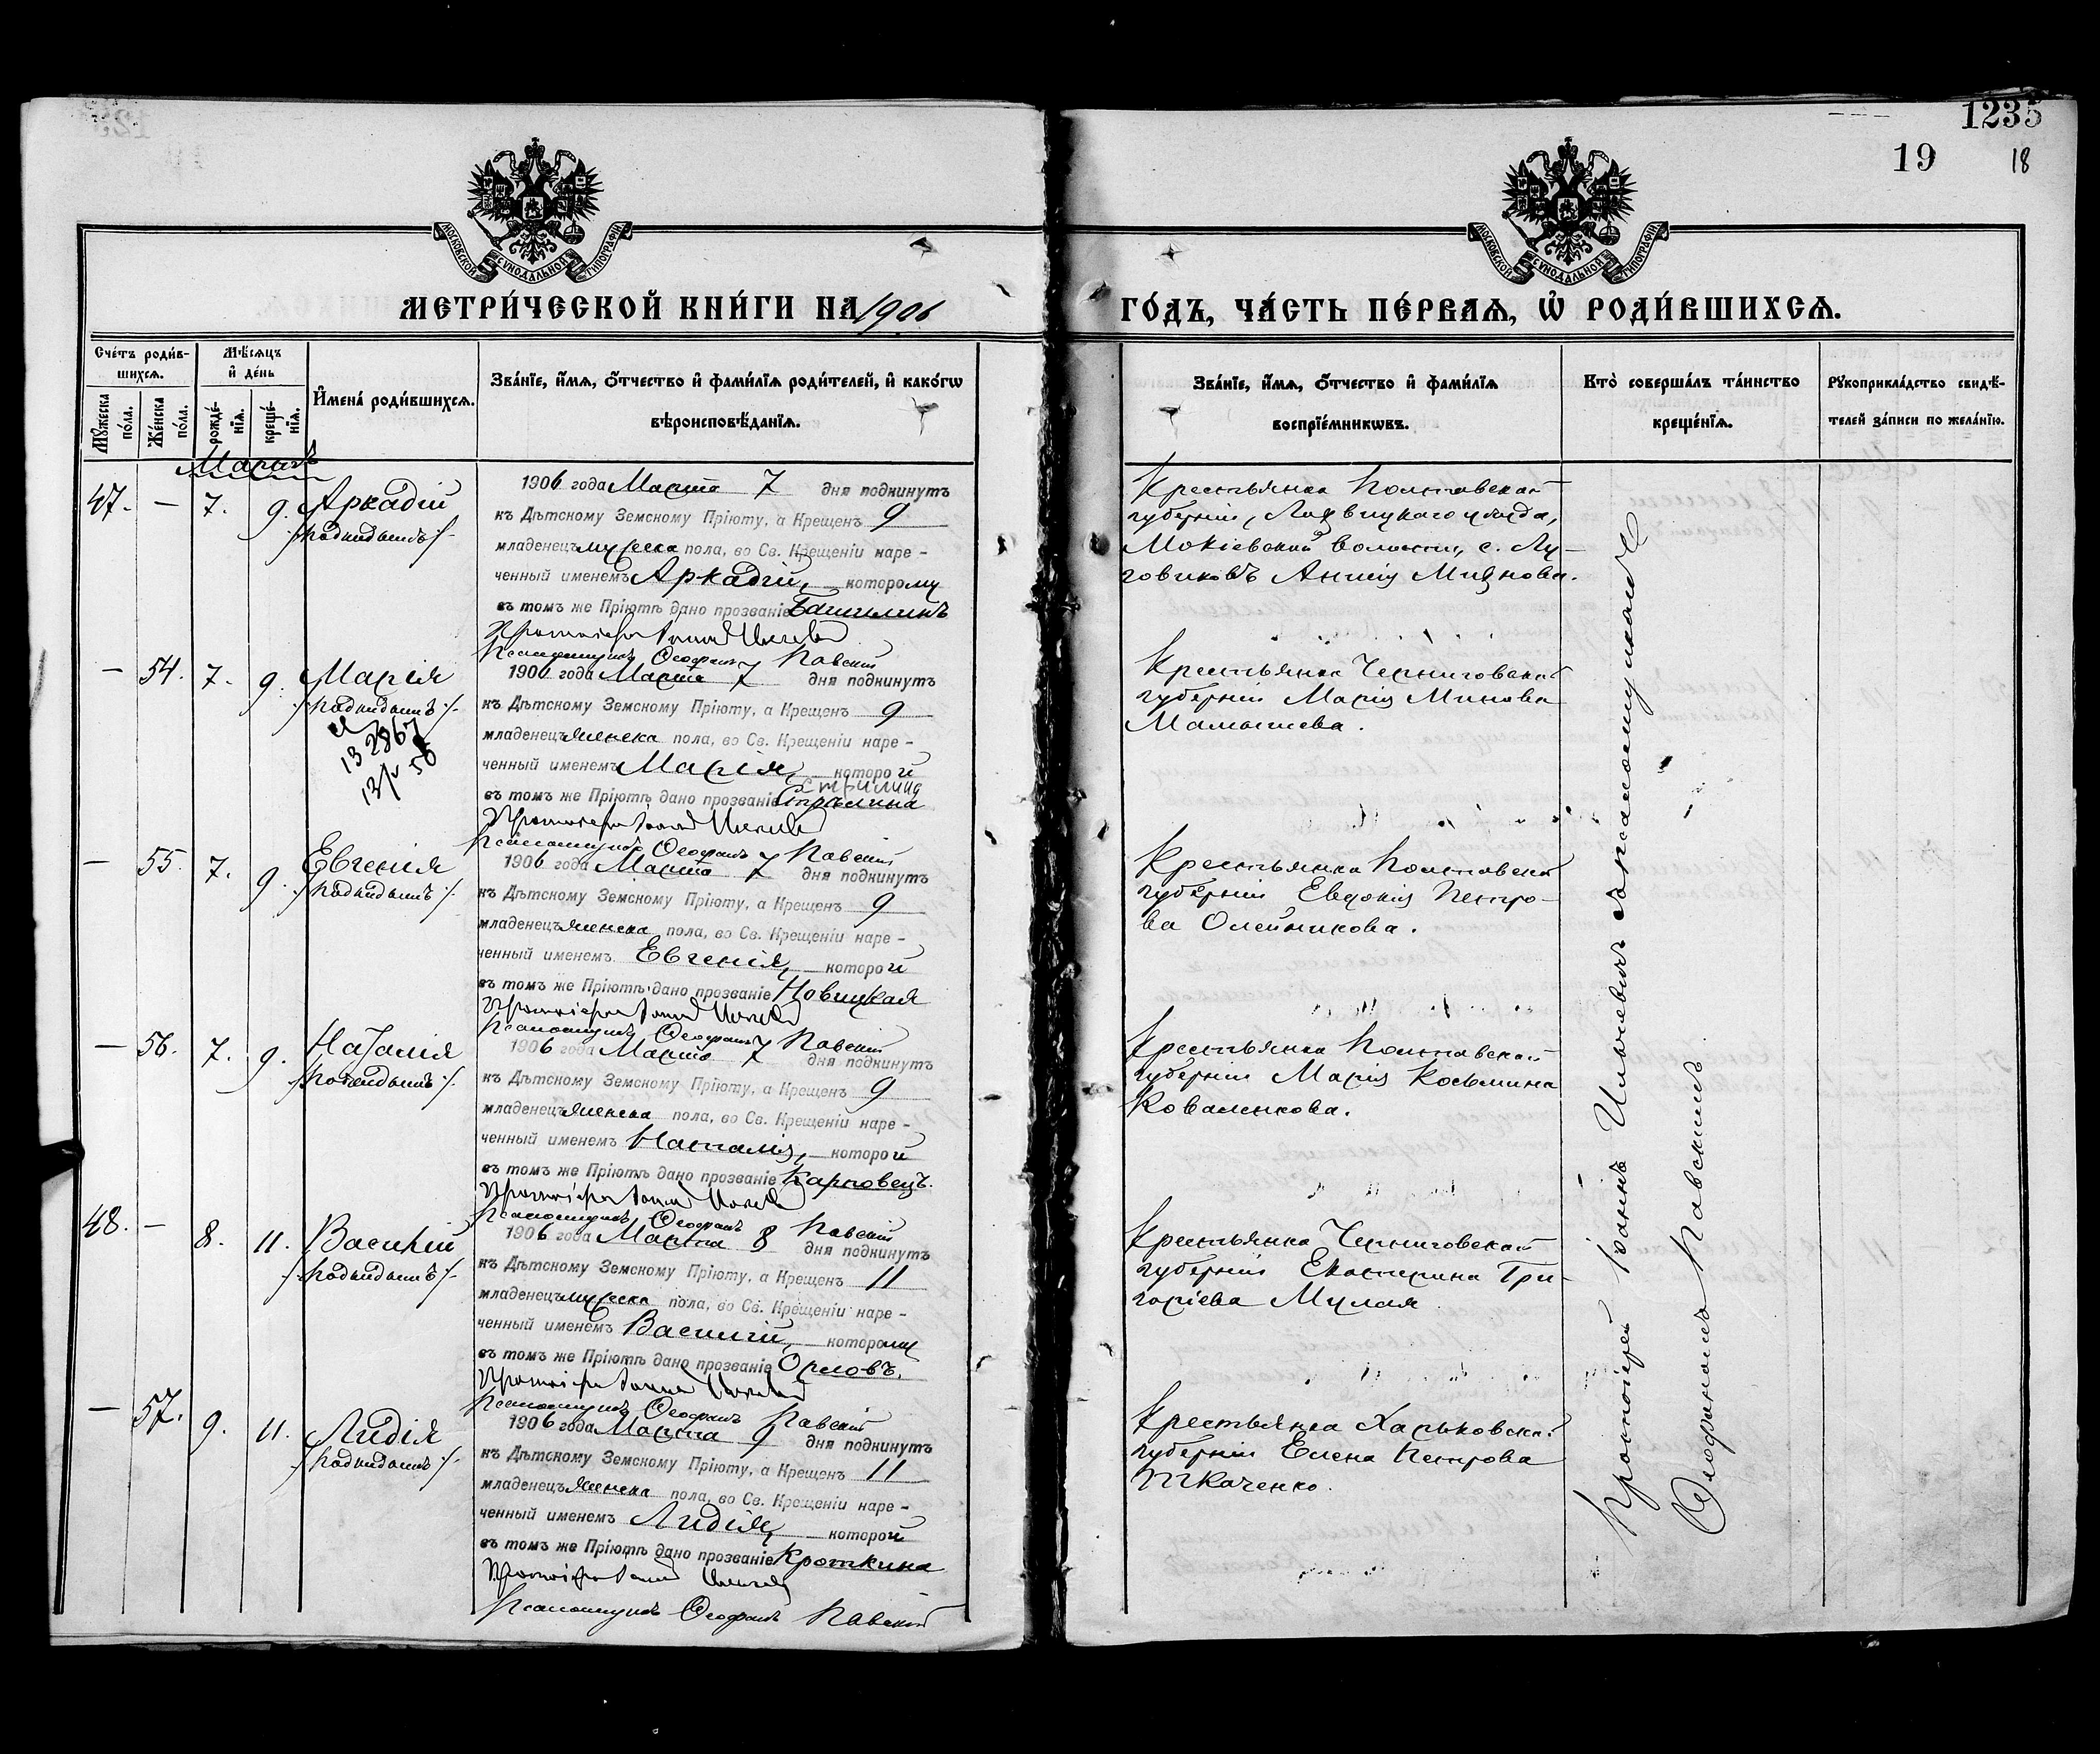 1235
19
18
МОСКОВСКОЙ СѴНОДАЛЬНОЙ ТИПОГРАФІИ
МОСКОВСКОЙ СѴНОДАЛЬНОЙ ТИПОГРАФІИ
МЕТРИ́ЧЕСКОЙ КНИ́ГИ НА 1906
ГО́ДЪ, ЧА́СТЬ ПЕ́РВАѦ, Ѿ РОДИ́ВШИХСѦ.
Сче́тъ роди́в-
шихсѧ.
Мꙋ́жеска по́ла.
Же́нска по́ла.
Мѣ́сѧцъ
и҆ де́нь
рожде́-нїѧ.
креще́-нїѧ.
И҆мена̀ роди́вшихсѧ.
Зва́нїе, и҆́мѧ, ѻ҆́тчество и҆ фами́лїѧ роди́телей, и҆ како́гѡ
вѣроисповѣ́данїѧ.
Зва́нїе, и҆́мѧ, ѻ҆́тчество и҆ фами́лїѧ
воспрїе́мникѡвъ.
Кто̀ соверша́лъ та́инство
креще́нїѧ.
Рꙋкоприкла́дство свидѣ́-
телей за́писи по жела́нїю.
Мартъ
47. — 7. 9. Аркадій
/:подкидышъ:/
1906 года Марта 7 дня подкинутъ
къ Дѣтскому Земскому Пріюту, а Крещенъ 9
младенецъ мужеска пола, во Св. Крещеніи наре-
ченный именемъ Аркадій, которому
въ томъ же Пріютѣ дано прозваніе
Протоіерей Іоаннъ
Псаломщикъ Ѳеофанъ Павскій
Крестьянка Полтавской
губерніи, Лохвицкаго уѣзда,
Мокіевской волости, с. Лу-
говиковъ Анисія
— 54. 7. 9. Марія
/:подкидышъ:/
1906 года Марта 7 дня подкинутъ
къ Дѣтскому Земскому Пріюту, а Крещенъ 9
младенецъ женска пола, во Св. Крещеніи наре-
ченный именемъ Марія, которой
въ томъ же Пріютѣ дано прозваніе Стрѣлина
Протоіерей Іоаннъ
Псаломщикъ Ѳеофанъ Павскій
Крестьянка Черниговской
губерніи Марія Минова
— 55. 7. 9. Евгенія
/:подкидышъ:/
1906 года Марта 7 дня подкинутъ
къ Дѣтскому Земскому Пріюту, а Крещенъ 9
младенецъ женска пола, во Св. Крещеніи наре-
ченный именемъ Евгенія, которой
въ томъ же Пріютѣ дано прозваніе Новицкая
Протоіерей Іоаннъ
Псаломщикъ Ѳеофанъ Павскій
Крестьянка Полтавской
губерніи Евдокія Петро-
ва Олейникова.
— 56. 7. 9. Наталія
/:подкидышъ:/
1906 года Марта 7 дня подкинутъ
къ Дѣтскому Земскому Пріюту, а Крещенъ 9
младенецъ женска пола, во Св. Крещеніи наре-
ченный именемъ Наталія, которой
въ томъ же Пріютѣ дано прозваніе Карповецъ.
Протоіерей Іоаннъ
Псаломщикъ Ѳеофанъ Павскій
Крестьянка Полтавской
губерніи Марія Косьмина
Коваленкова.
48. — 8. 11. Василій
/:подкидышъ:/
1906 года Марта 8 дня подкинутъ
къ Дѣтскому Земскому Пріюту, а Крещенъ 11
младенецъ мужеска пола, во Св. Крещеніи наре-
ченный именемъ Василій, которому
въ томъ же Пріютѣ дано прозваніе Орловъ.
Протоіерей Іоаннъ
Псаломщикъ Ѳеофанъ Павскій
Крестьянка Черниговской
губерніи Екатерина Гри-
горіева Мулая
— 57. 9. 11. Лидія
/:подкидышъ:/
1906 года Марта 9 дня подкинутъ
къ Дѣтскому Земскому Пріюту, а Крещенъ 11
младенецъ женска пола, во Св. Крещеніи наре-
ченный именемъ Лидія, которой
въ томъ же Пріютѣ дано прозваніе Кроткина
Протоіерей Іоаннъ
Псаломщикъ Ѳеофанъ Павскій
Крестьянка Харьковской
губерніи Елена Петрова
Ткаченко.
Протоіерей Іоаннъ съ псаломщикомъ
Ѳеофаномъ Павскимъ